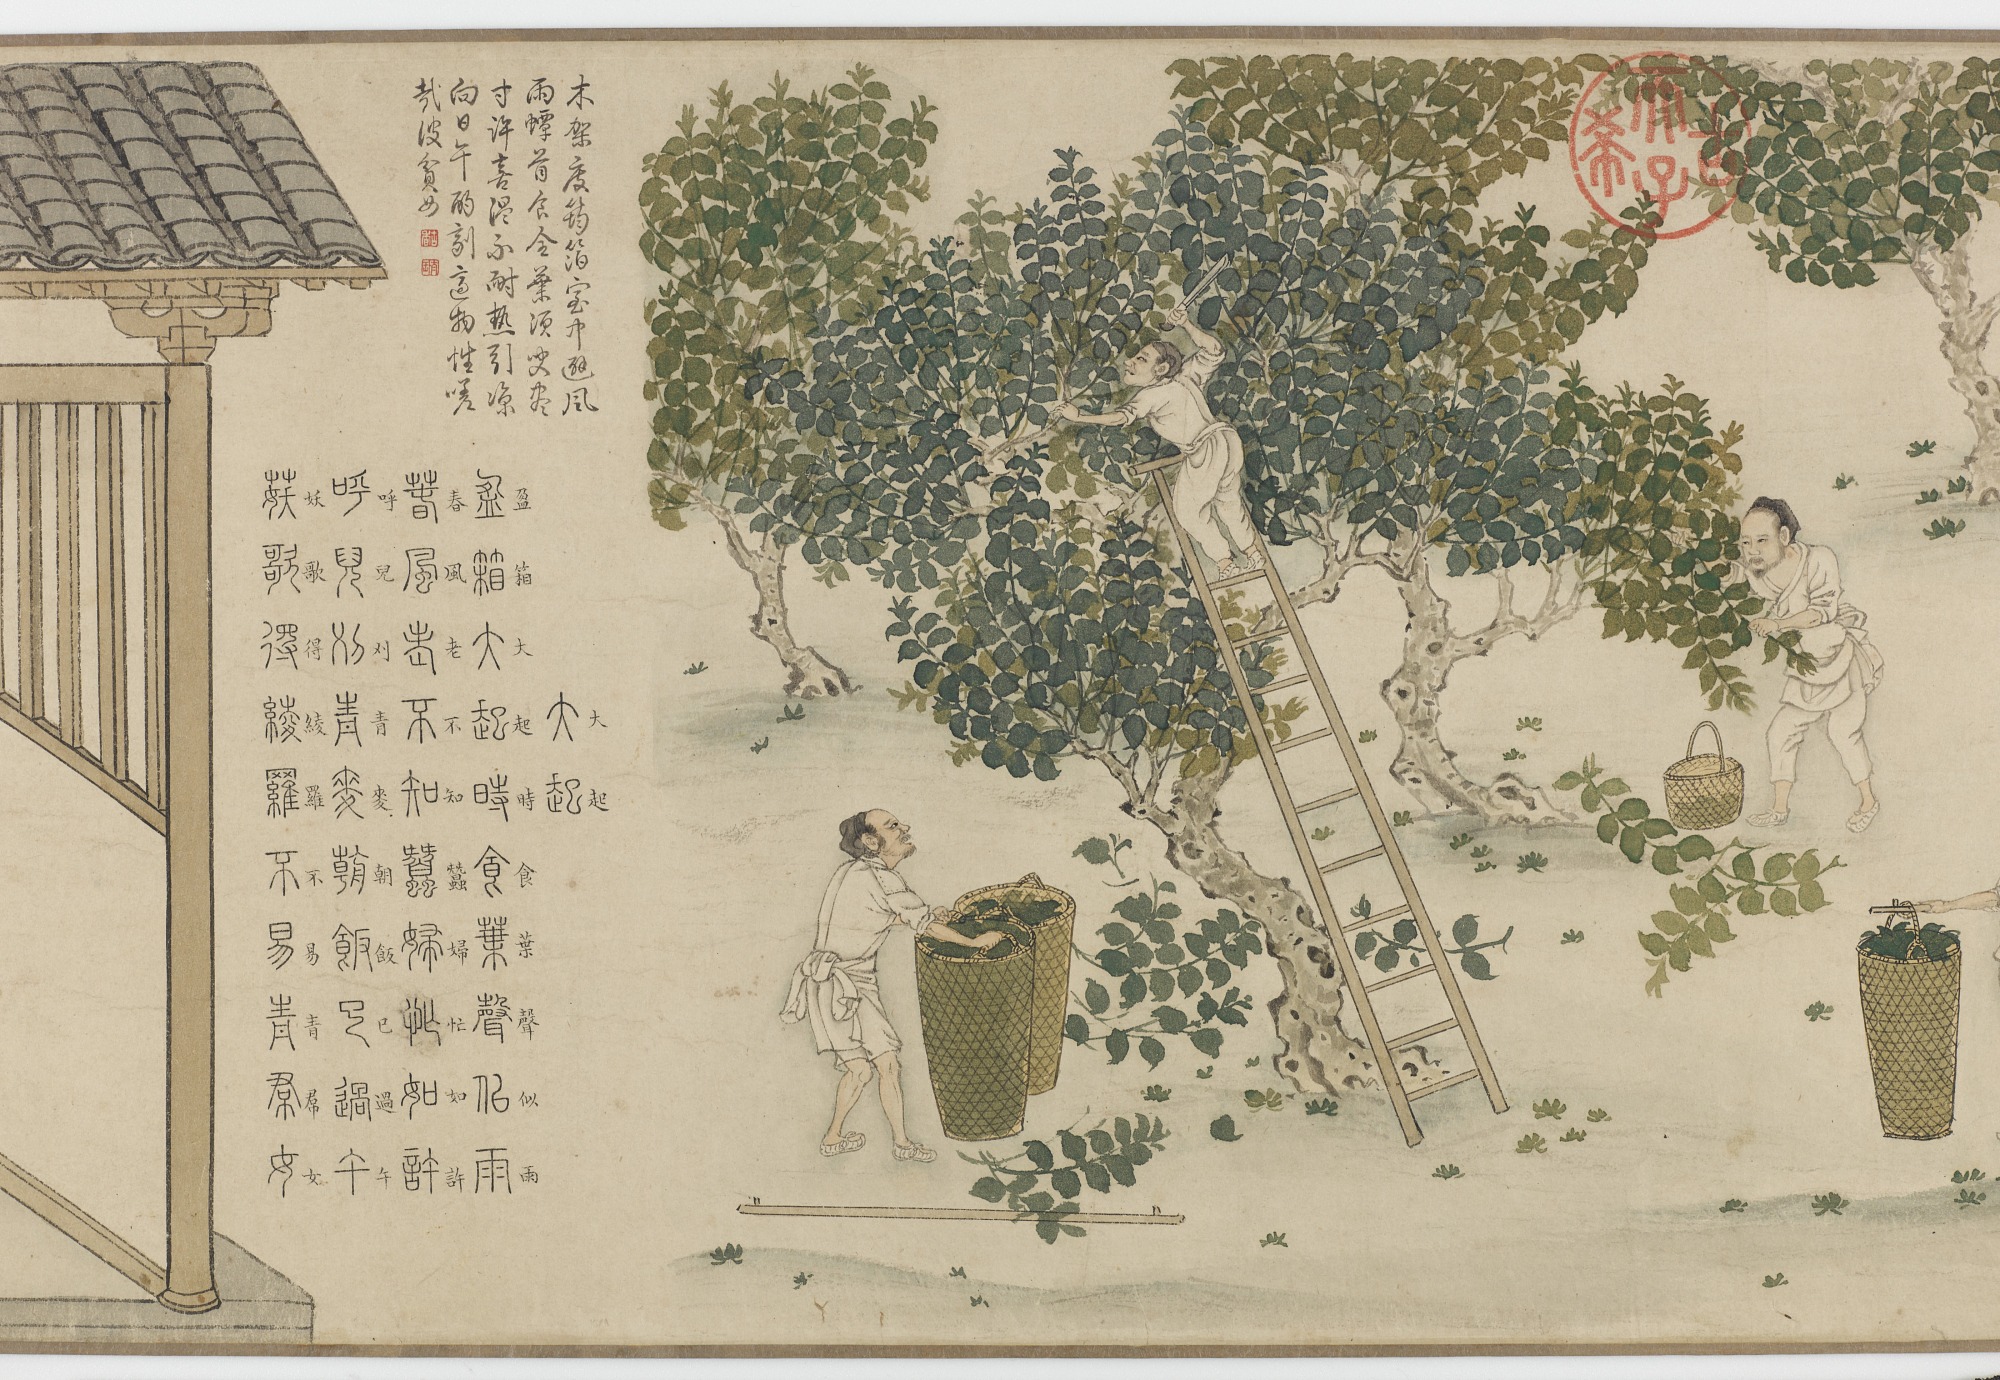 古希天子
木架庋筠箔室中避風
雨蟫首食全葉須臾盡
寸許喜溫不耐熱引涼
向日午酌劑適物性嗟
哉彼貧女
大起
大起
盈箱大起時食葉聲似雨
盈箱大起時食葉聲似雨
春風老不知蠶婦忙如許
春風老不知蠶婦忙如許
呼兒刈青麥朝飯已過午
呼兒刈青麥朝飯已過午
妖歌得綾羅不易青帬女
妖歌得綾羅不易青帬女